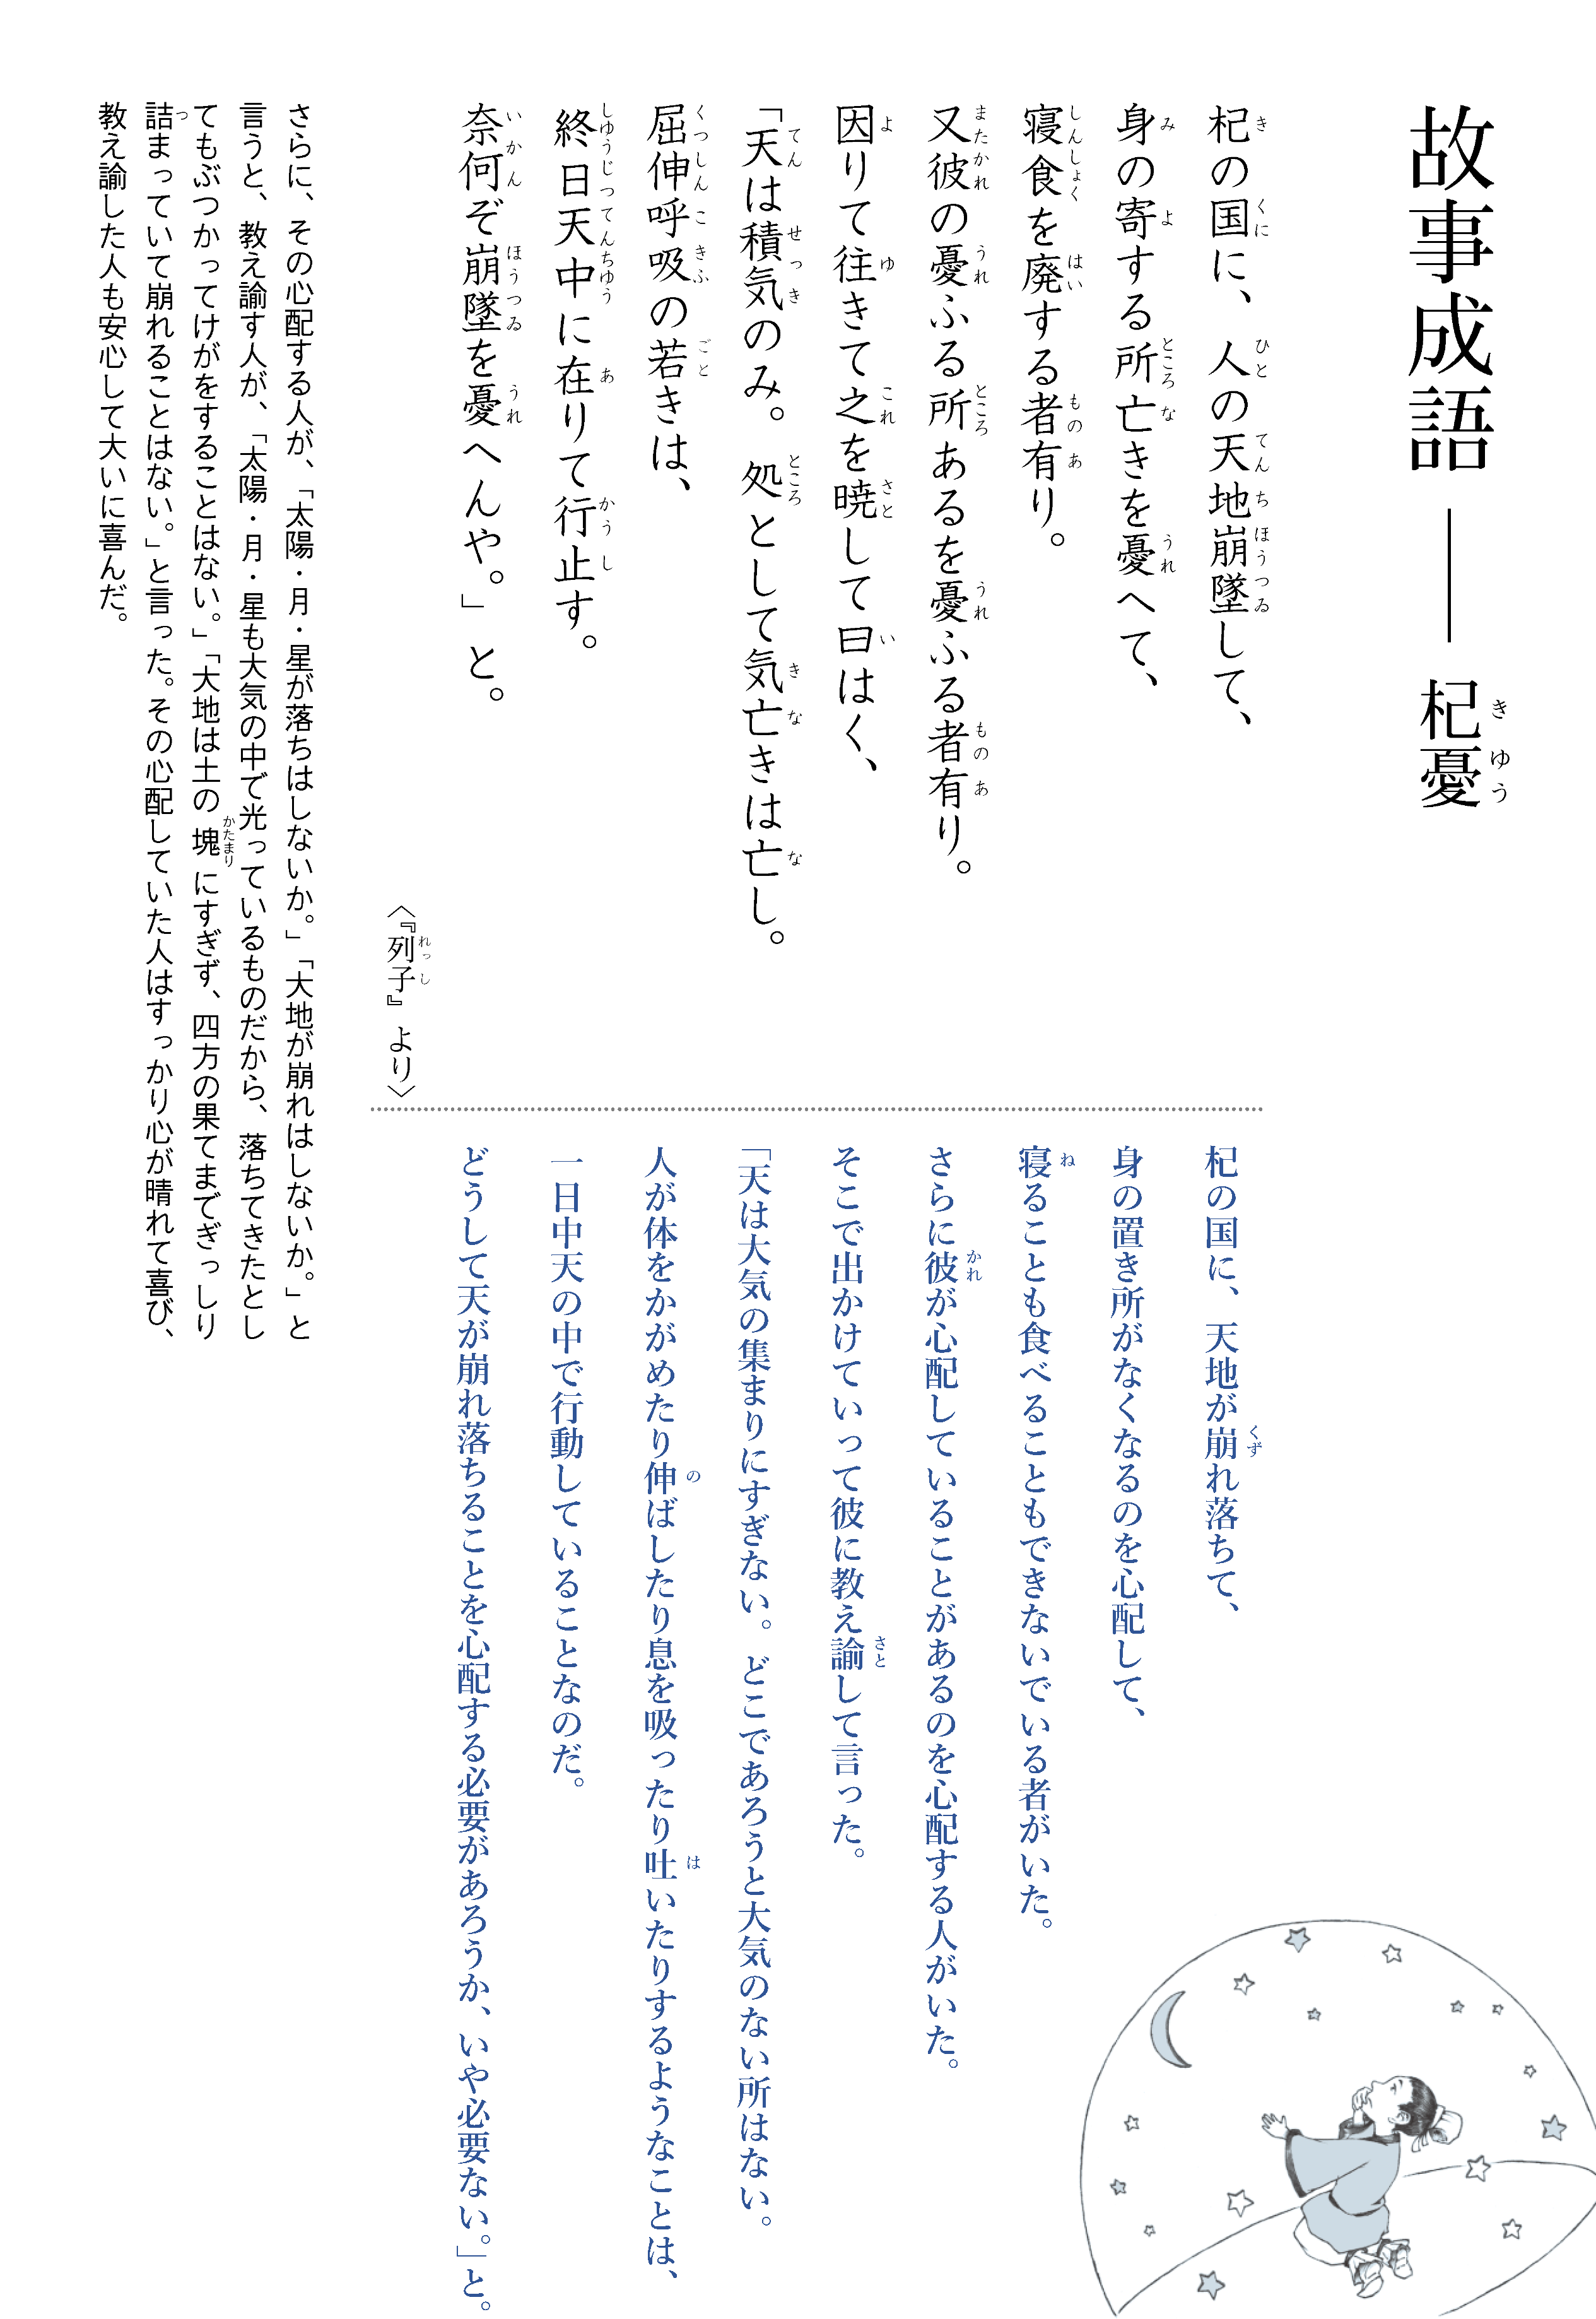 故事成語――杞憂
杞の国に、人の天地崩墜して、
身の寄する所亡きを憂へて、
寝食を廃する者有り。
又彼の憂ふる所あるを憂ふる者有り。
因りて往きて之を暁して曰はく、
「天は積気のみ。処として気亡きは亡し。
屈伸呼吸の若きは、
終日天中に在りて行止す。
奈何ぞ崩墜を憂へんや。」と。
〈『列子』より〉
杞の国に、天地が崩れ落ちて、
身の置き所がなくなるのを心配して、
寝ることも食べることもできないでいる者がいた。
さらに彼が心配していることがあるのを心配する人がいた。
そこで出かけていって彼に教え諭して言った。
「天は大気の集まりにすぎない。どこであろうと大気のない所はない。
人が体をかがめたり伸ばしたり息を吸ったり吐いたりするようなことは、
一日中天の中で行動していることなのだ。
どうして天が崩れ落ちることを心配する必要があろうか、いや必要ない。」と。
さらに、その心配する人が、「太陽・月・星が落ちはしないか。」「大地が崩れはしないか。」と
言うと、教え諭す人が、「太陽・月・星も大気の中で光っているものだから、落ちてきたとし
てもぶつかってけがをすることはない。」「大地は土の塊にすぎず、四方の果てまでぎっしり
詰まっていて崩れることはない。」と言った。その心配していた人はすっかり心が晴れて喜び、
教え諭した人も安心して大いに喜んだ。